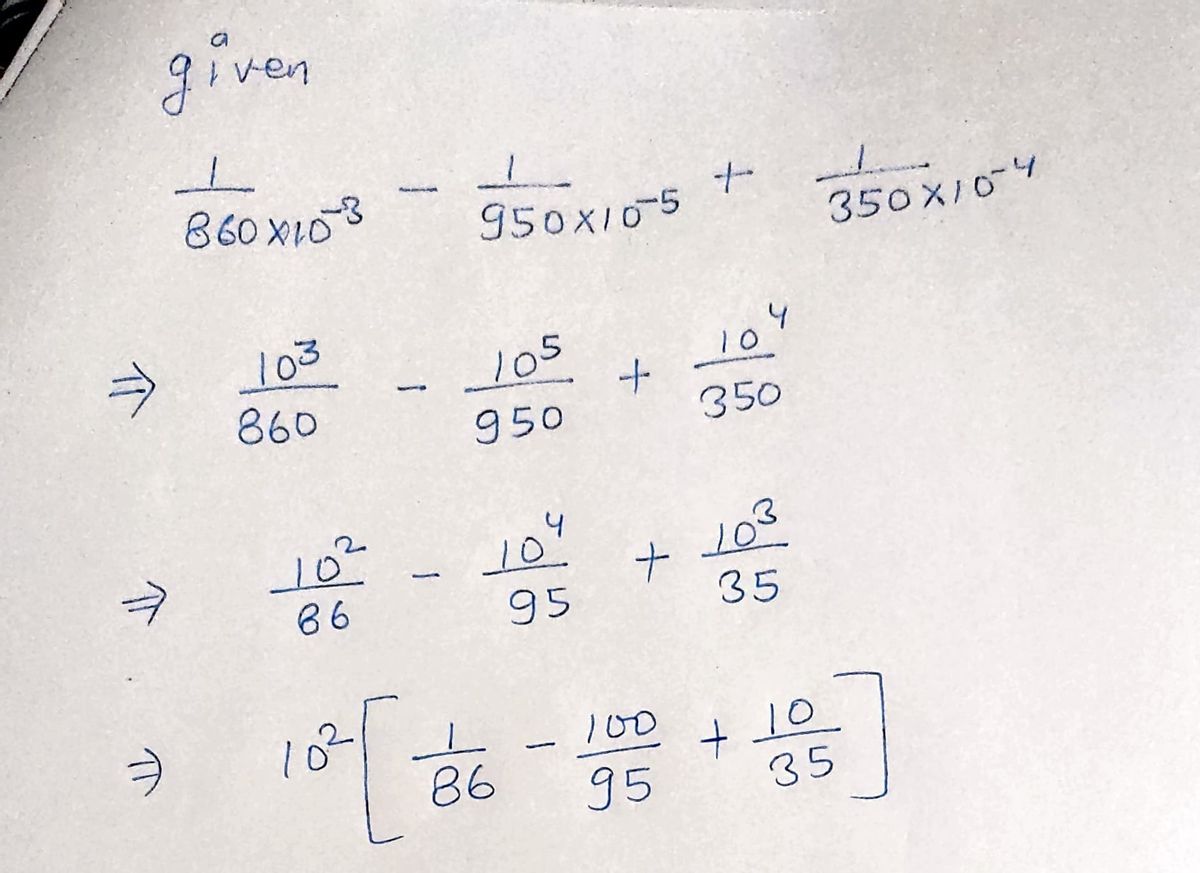 given
1/860×10⁻³ − 1/950×10⁻⁵ + 1/350×10⁻⁴
⇒ 10³/860 − 10⁵/950 + 10⁴/350
⇒ 10²/86 − 10⁴/95 + 10³/35
⇒ 10²[1/86 − 100/95 + 10/35]